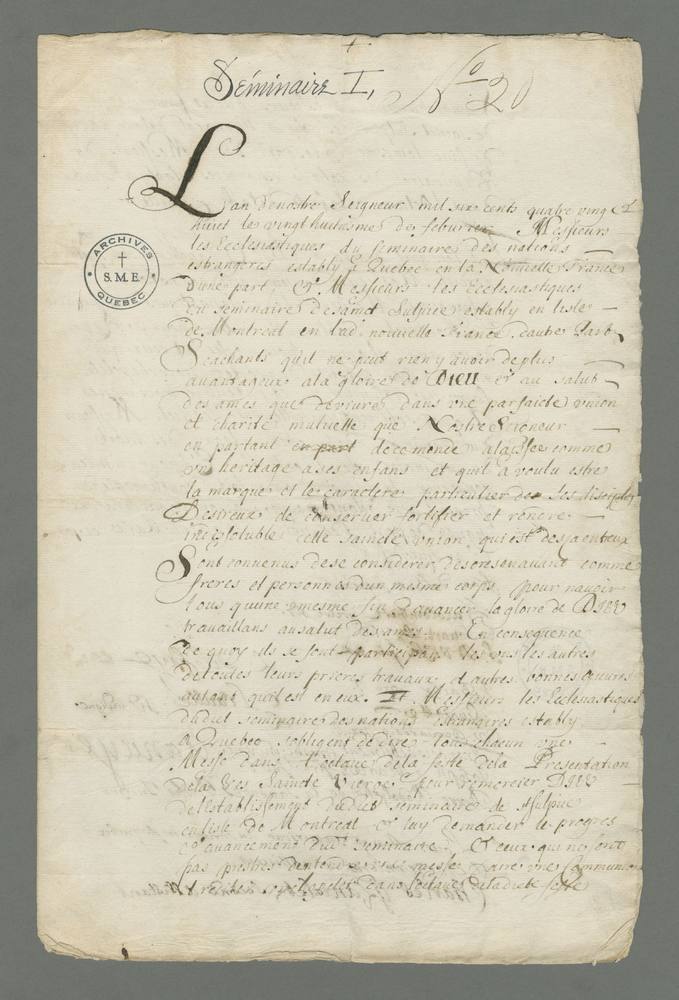 Séminaire I, N° 20
ARCHIVES
S.M.E.
QUEBEC
Lan denostre Seigneur mil six cents quatre ving et
huict le vingthuitiesme de feburier Messieurs
les Ecclesiastiques du seminaire des nations
estrangeres estably a Quebec en la Nouvelle France
dune part et Messieurs les Ecclesiastiques
du seminaire desainct Sulpice estably en lisle
de Montreal en lad. nouvelle france dautre Part
Scachants quil ne peut rien y avoir deplus
avantageux ala gloire de DIEU et au salut
des ames que devivre dans une parfaicte union
et charité mutuelle que Nostre Seigneur
en partant en part decemonde alaissée comme
un heritage ases enfans et quil a voulu estre
la marque et le caractere particulier de ses disciples
Desireux de conserver fortifier et rendre
indissoluble cette saincte union qui est desja entreux
Sont convenus dese considerer doresenavant comme
freres et personnes dun mesme corps pour navoir
tous quune mesme fin davancer la gloire de DIEU
travaillans ausalut des ames. En consequence
de quoy ils se font participans les uns les autres
detoutes leurs prieres travaux et autres bonnes œuvres
autant quil est en eux. Et Messieurs les Ecclesiastiques
dudict seminaire des nations Estrangeres estably
a Quebec sobligent de dire tous chacun une
Messe dans l'octave dela feste dela Presentation
dela Saincte Vierge pour remercier DIEU
de l'Establissement dudict seminaire de
en lisle de Montreal et luy demander le progres
et avancement dudt seminaire. Et ceux qui ne sont
pas prestres dentendre une messe faire une Communion
dans l'octave deladicte feste